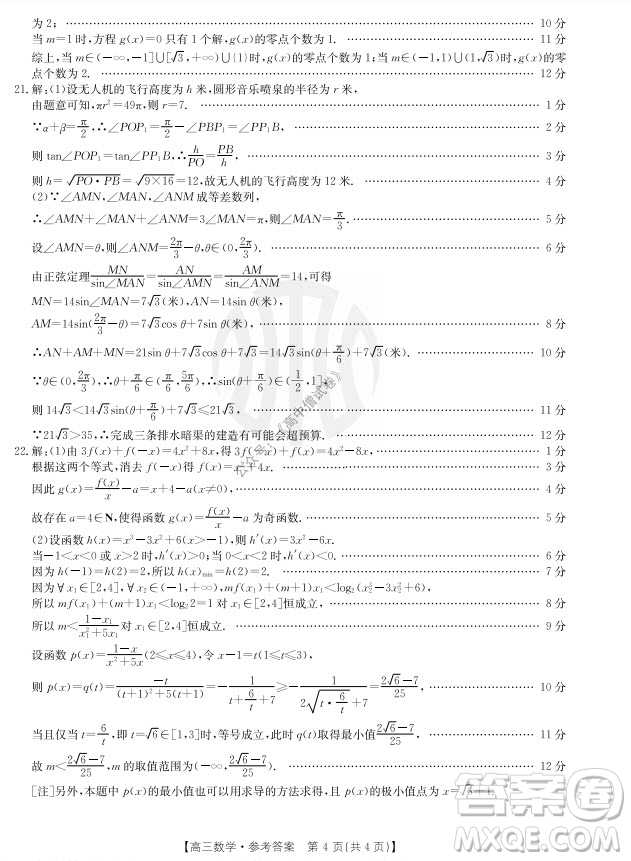 为 2; 10 分
当 m=1 时,方程 g(x)=0 只有 1 个解,g(x)的零点个数为 1. 11 分
综上,当 m∈(-∞,-1]∪[√3,+∞)∪{1}时,g(x)的零点个数为 1;当 m∈(-1,1)∪(1,√3)时,g(x)的零
点个数为 2. 12 分
21.解:(1)设无人机的飞行高度为 h 米,圆形音乐喷泉的半径为 r 米,
由题意可知,πr²=49π,则 r=7. 1 分
∵α+β=π/2,∴∠POP₁=π/2-∠PBP₁=∠PP₁B, 2 分
则 tan∠POP₁=tan∠PP₁B,∴h/PO=PB/h, 3 分
则 h=√(PO·PB)=√(9×16)=12,故无人机的飞行高度为 12 米. 4 分
(2)∵∠AMN,∠MAN,∠ANM 成等差数列,
∴∠AMN+∠MAN+∠ANM=3∠MAN=π,则∠MAN=π/3.
设∠AMN=θ,则∠ANM=2π/3-θ,θ∈(0,2π/3). 6 分
由正弦定理 MN/sin∠MAN=AN/sin∠AMN=AM/sin∠ANM=14,可得
MN=14sin∠MAN=7√3(米),AN=14sin θ(米),
AM=14sin(2π/3-θ)=7√3cos θ+7sin θ(米), 8 分
∴AN+AM+MN=21sin θ+7√3cos θ+7√3=14√3sin(θ+π/6)+7√3(米). 10 分
∵θ∈(0,2π/3),∴θ+π/6∈(π/6,5π/6),∴sin(θ+π/6)∈(1/2,1],
则 14√3<14√3sin(θ+π/6)+7√3≤21√3, 11 分
∵21√3>35,∴完成三条排水暗渠的建造有可能会超预算. 12 分
22.解:(1)由 3f(x)+f(-x)=4x²+8x,得 3f(-x)+f(x)=4x²-8x, 1 分
根据这两个等式,消去 f(-x)得 f(x)=x²+4x. 3 分
因此 g(x)=f(x)/x-a=x+4-a(x≠0), 4 分
故存在 a=4∈N,使得函数 g(x)=f(x)/x-a 为奇函数. 5 分
(2)设函数 h(x)=x³-3x²+6(x>-1),则 h′(x)=3x²-6x.
当-1<x<0 或 x>2 时,h′(x)>0;当 0<x<2 时,h′(x)<0. 6 分
因为 h(-1)=h(2)=2,所以 h(x)min=h(2)=2. 7 分
因为∀x₁∈[2,4],∀x₂∈(-1,+∞),mf(x₁)+(m+1)x₁<log₂(x₂³-3x₂²+6),
所以 mf(x₁)+(m+1)x₁<log₂2=1 对 x₁∈[2,4]恒成立, 8 分
所以 m<(1-x₁)/(x₁²+5x₁)对 x₁∈[2,4]恒成立. 9 分
设函数 p(x)=(1-x)/(x²+5x)(2≤x≤4),令 x-1=t(1≤t≤3),
则 p(x)=q(t)=-t/((t+1)²+5(t+1))=-1/(t+6/t+7)≥-1/(2√(t·6/t)+7)=(2√6-7)/25, 10 分
当且仅当 t=6/t,即 t=√6∈[1,3]时,等号成立,此时 q(t)取得最小值(2√6-7)/25, 11 分
故 m<(2√6-7)/25,m 的取值范围为(-∞,(2√6-7)/25). 12 分
[注]另外,本题中 p(x)的最小值也可以用导数的方法求得,且 p(x)的极小值点为 x=
【高三数学·参考答案 第 4 页(共 4 页)】
公众号:《高中僧试卷》
答案圈